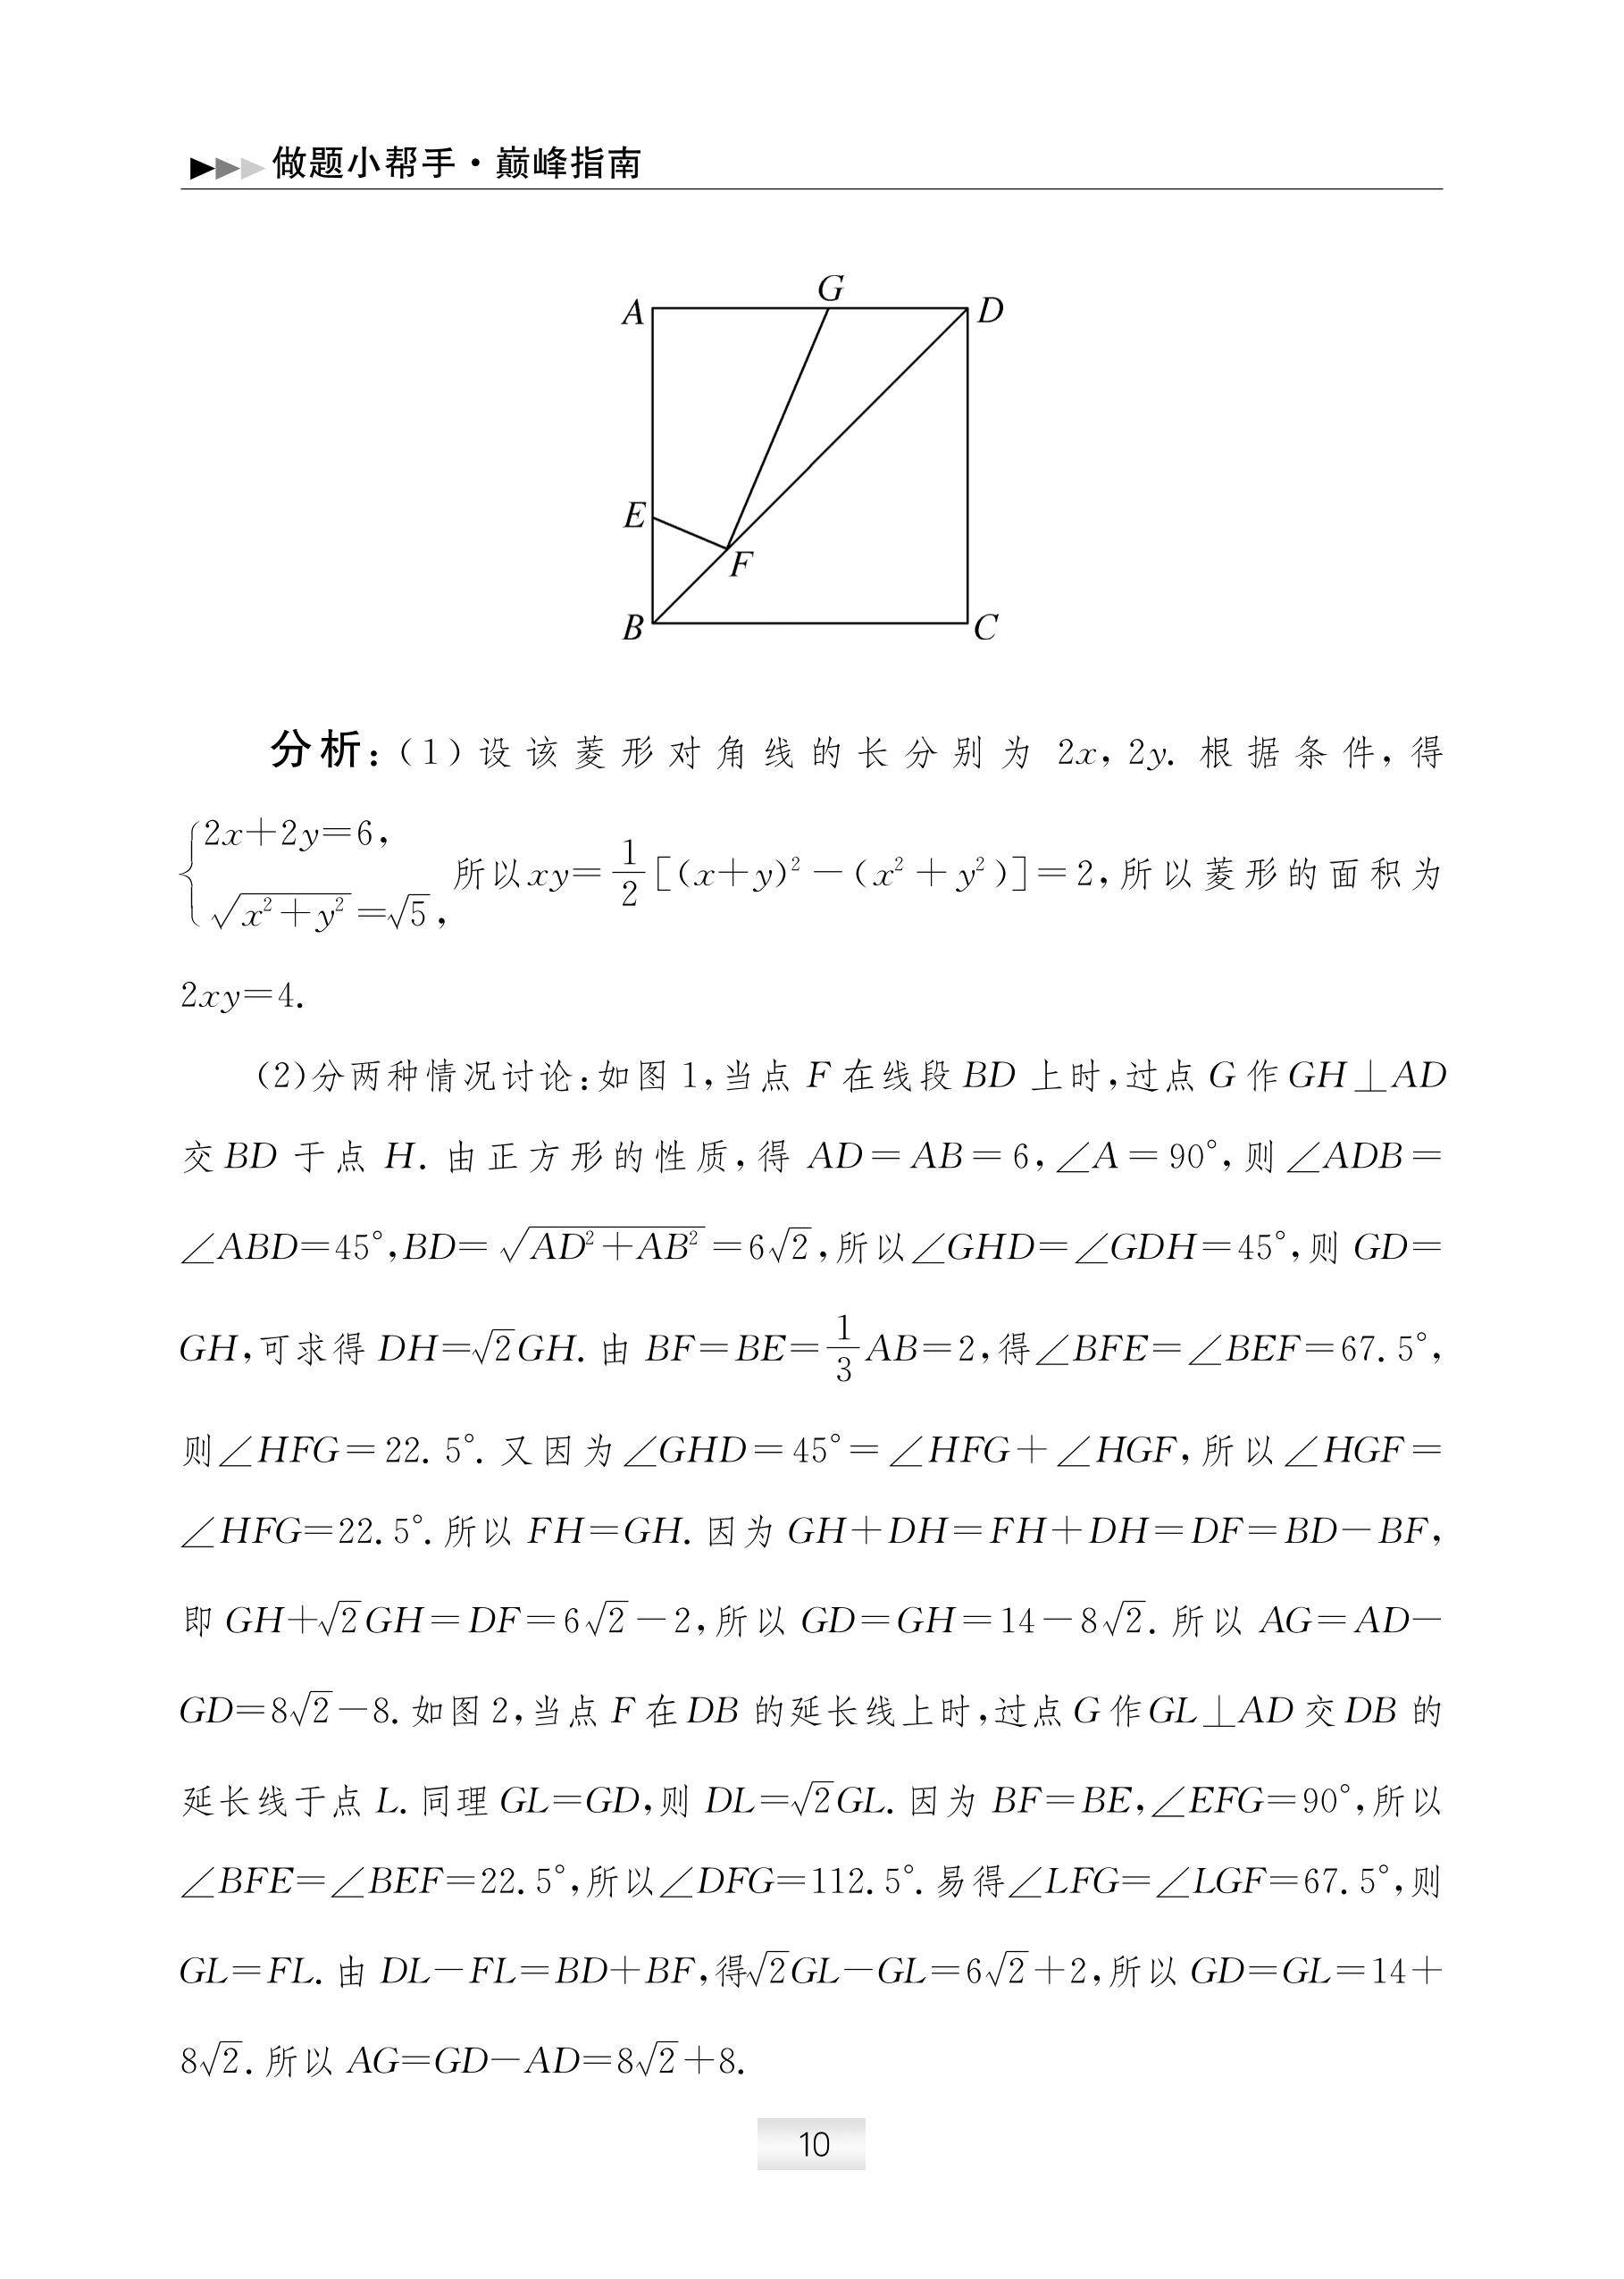 做题小帮手·巅峰指南
G
A
D
E
F
B
C
分析:(1)设该菱形对角线的长分别为 2x, 2y. 根据条件,得
{2x+2y=6, √(x²+y²)=√5, 所以xy=1/2[(x+y)²-(x²+y²)]=2,所以菱形的面积为
2xy=4.
(2)分两种情况讨论:如图1,当点 F 在线段 BD 上时,过点 G 作 GH⊥AD
交 BD 于点 H. 由正方形的性质,得 AD=AB=6,∠A=90°,则∠ADB=
∠ABD=45°,BD=√(AD²+AB²)=6√2,所以∠GHD=∠GDH=45°,则 GD=
GH,可求得 DH=√2GH. 由 BF=BE=1/3AB=2,得∠BFE=∠BEF=67.5°,
则∠HFG=22.5°. 又因为∠GHD=45°=∠HFG+∠HGF,所以∠HGF=
∠HFG=22.5°.所以 FH=GH. 因为 GH+DH=FH+DH=DF=BD-BF,
即 GH+√2GH=DF=6√2-2,所以 GD=GH=14-8√2. 所以 AG=AD-
GD=8√2-8. 如图2,当点 F 在 DB 的延长线上时,过点 G 作 GL⊥AD 交 DB 的
延长线于点 L. 同理 GL=GD,则 DL=√2GL. 因为 BF=BE,∠EFG=90°,所以
∠BFE=∠BEF=22.5°,所以∠DFG=112.5°. 易得∠LFG=∠LGF=67.5°,则
GL=FL. 由 DL-FL=BD+BF,得√2GL-GL=6√2+2,所以 GD=GL=14+
8√2. 所以 AG=GD-AD=8√2+8.
10